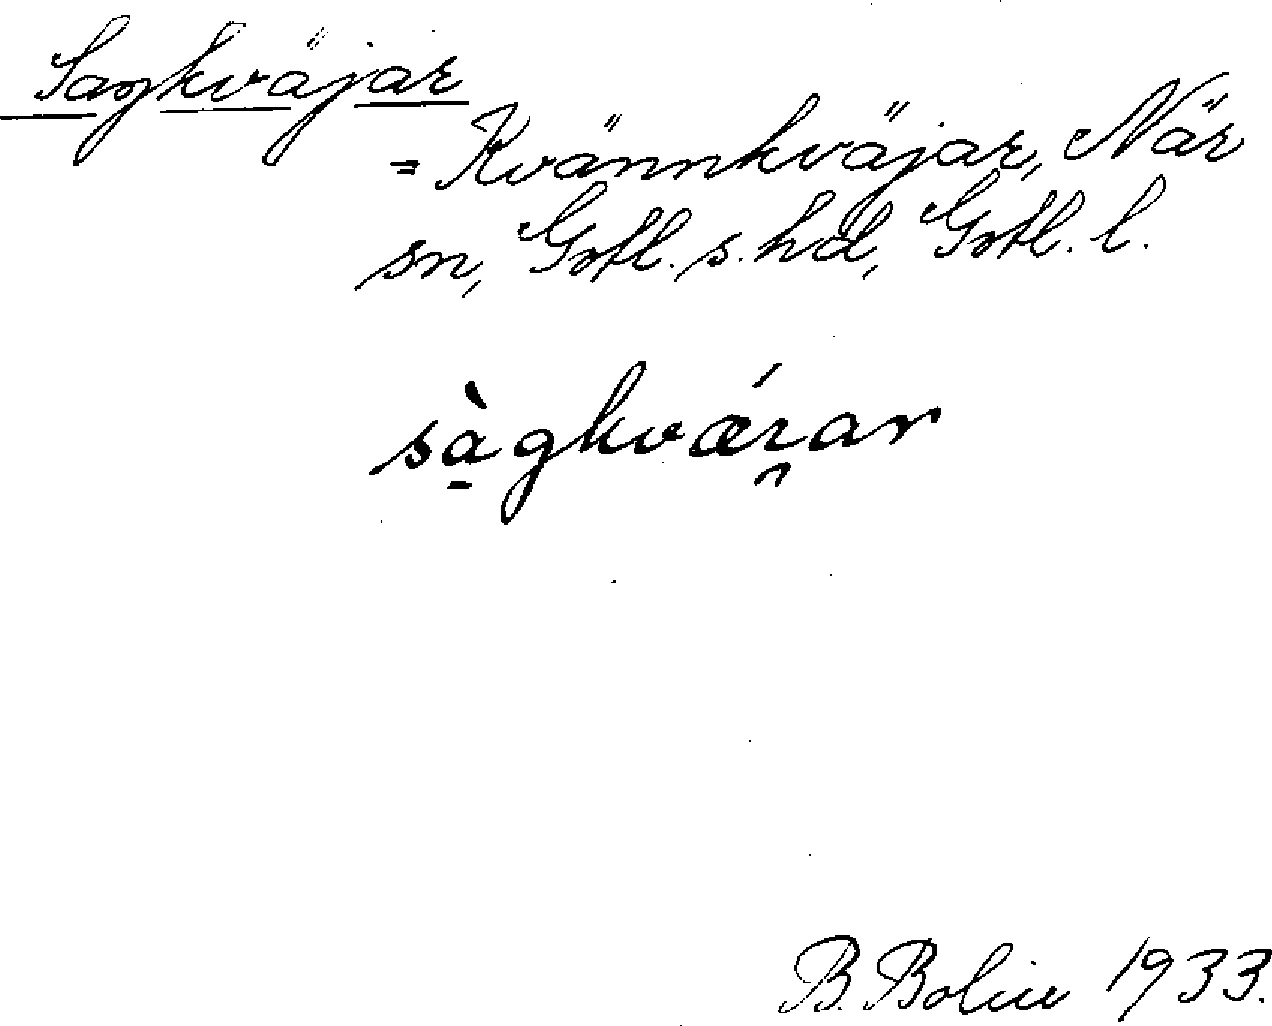 Sagkväjar
= Kvännkväjar, När
sn, Gotl. s. hd, Gotl. l.
sàgkvǽɪ̯ar
B. Bolin 1933.